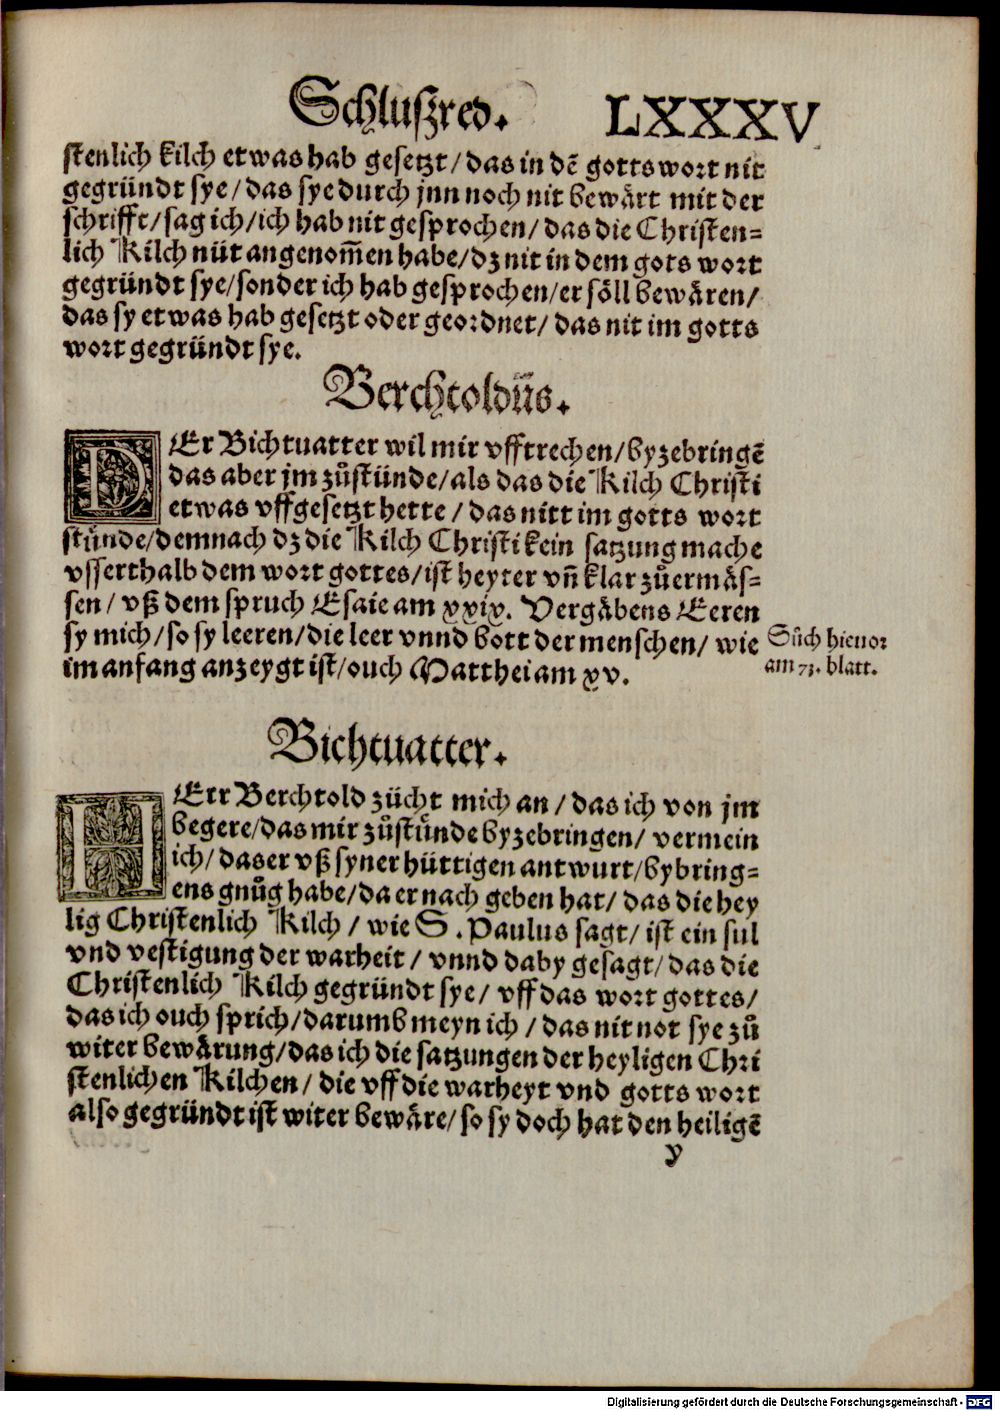 Schlußred. LXXXV
stenlich kilch etwas hab gesetzt / das in dē gotts wort nit
gegründt sye / das sye durch jnn noch nit bewårt mit der
schrifft / sag ich / ich hab nit gesprochen / das die Christen=
lich Kilch nüt angenom̄en habe / dz nit in dem gots wort
gegründt sye / sonder ich hab gesprochen / er söll bewåren /
das sy etwas hab gesetzt oder geordnet / das nit im gotts
wort gegründt sye.
Berchtoldus.
DEr Bichtuatter wil mir vfftrechen / byzebringē
das aber jm zůstünde / als das die Kilch Christi
etwas vffgesetzt hette / das nitt im gotts wort
stünde / demnach dz die Kilch Christi kein satzung mache
vsserthalb dem wort gottes / ist heyter vn̄ klar zůermås=
sen / vß dem spruch Esaie am xxix. Vergåbens Eeren
sy mich / so sy leeren / die leer vnnd bott der menschen / wie
im anfang anzeygt ist / ouch Matthei am xv.
Sůch hieuor
am 73. blatt.
Bichtuatter.
HErr Berchtold zücht mich an / das ich von jm
begere / das mir zůstünde byzebringen / vermein
ich / das er vß syner hüttigen antwurt / bybring=
ens gnůg habe / da er nach geben hat / das die hey
lig Christenlich Kilch / wie S. Paulus sagt / ist ein sul
vnd vestigung der warheit / vnnd daby gesagt / das die
Christenlich Kilch gegründt sye / vff das wort gottes /
das ich ouch sprich / darumb meyn ich / das nit not sye zů
witer bewårung / das ich die satzungen der heyligen Chri
stenlichen Kilchen / die vff die warheyt vnd gotts wort
also gegründt ist witer bewåre / so sy doch hat den heiligē
y
Digitalisierung gefördert durch die Deutsche Forschungsgemeinschaft - DFG